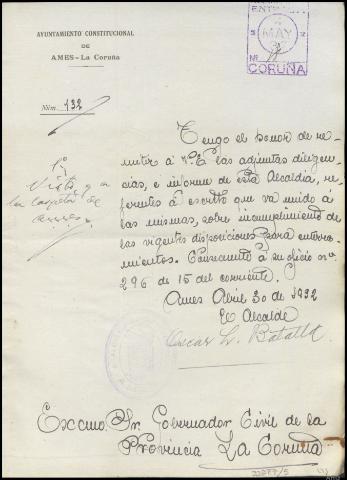 AYUNTAMIENTO CONSTITUCIONAL
DE
AMES-La Coruña
ENTRADA
MAY
Nº
CORUÑA
Núm. 132
Tengo el honor de re-
mitir á V.E. las adjuntas diligen-
cias, e informe de esta Alcaldia, re-
ferentes á escrito que va unido á
las mismas, sobre incumplimiento de
las vigentes disposiciones para enterra-
mientos. Consecuente á su oficio nº
296 de 15 del corriente.
Visto, y a
la carpeta de
Ames Abril 30 de 1932
El Alcalde
Oscar L. Batalla
Excmo. Sr. Gobernador Civil de la
Provincia La Coruña